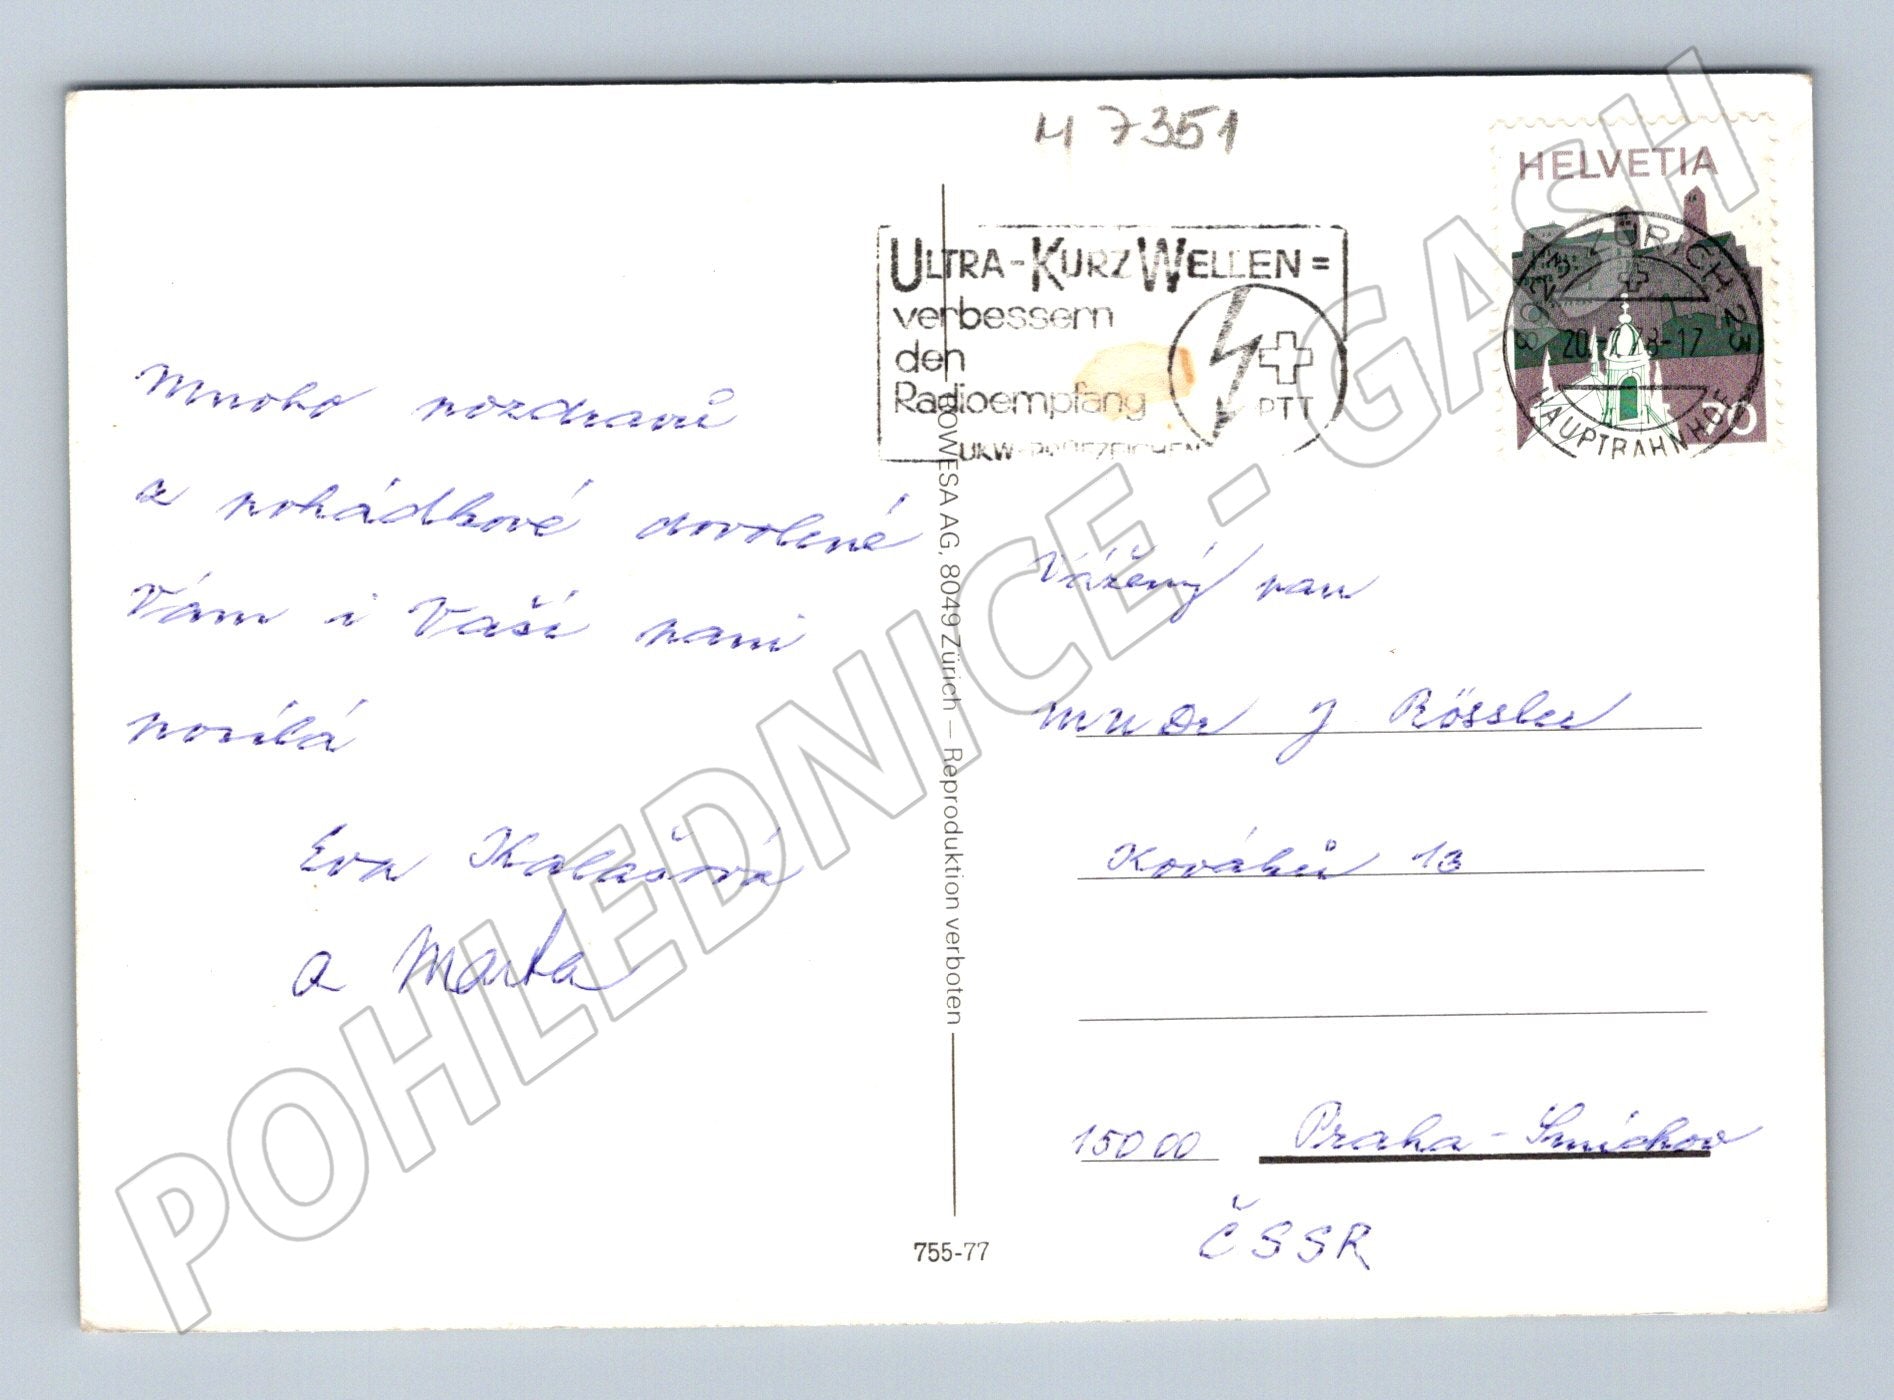 M 7351
HELVETIA
ULTRA-KURZ WELLEN=
verbessern
den
Radioempfang
PTT
ZÜRICH 23
20. 78-17
HAUPTBAHNHOF
70
Mnoho pozdravů
z pohádkové dovolené
Vám i Vaší paní
posílá
Eva
a Marta
BOWESA AG, 8049 Zürich — Reproduktion verboten
755-77
Vážený pan
MUDr J Rössler
Kováků 13
150 00 Praha-Smíchov
ČSSR
POHLEDNICE - GASH